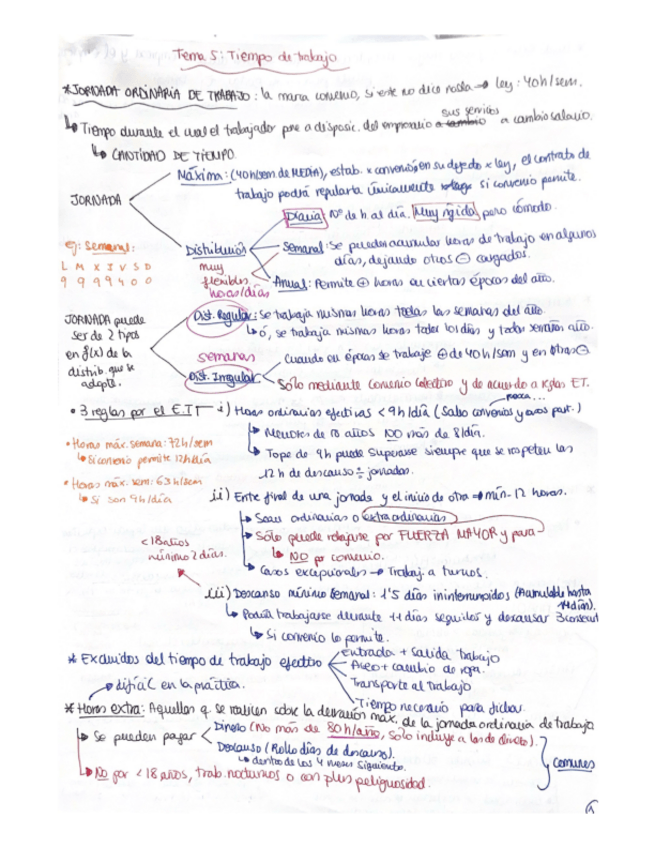 Tema 5: Tiempo de trabajo
*JORNADA ORDINARIA DE TRABAJO: la marca convenio, si este no dice nada → ley: 40h/sem.
↳ Tiempo durante el cual el trabajador pone a disposic. del empresario sus servicios a cambio salario.
↳ CANTIDAD DE TIEMPO.
JORNADA
Máxima: (40h/sem de MEDIA), estab. x convenios, en su defecto x ley, el contrato de
trabajo podrá regularla únicamente si convenio permite.
Distribución
muy
flexibles
horas/días
Diaria Nº de h al día. Muy rígida pero cómodo.
Semanal: Se pueden acumular horas de trabajo en algunos
días, dejando otros ⊖ cargados.
Anual: Permite ⊕ horas en ciertas épocas del año.
ej: semanal:
L M X J V S D
9 9 9 9 4 0 0
JORNADA puede
ser de 2 tipos
en f(x) de la
distrib. que se
adopte.
semanas
Dist. Regular: Se trabaja mismas horas todas las semanas del año.
↳ ó, se trabaja mismas horas todos los días y todas semanas año.
Dist. Irregular
Cuando en épocas se trabaje ⊕ de 40h/sem y en otras ⊖
Sólo mediante convenio colectivo y de acuerdo a reglas ET.
• 3 reglas por el E.T
i) Horas ordinarias efectivas < 9h/día (Salvo convenios y casos part.)
↳ Menores de 18 años NO más de 8/día.
↳ Tope de 9h puede superarse siempre que se respeten las
12h de descanso ÷ jornadas.
• Horas máx. semana: 72h/sem
↳ Si convenio permite 12h/día
• Horas máx. sem: 63h/sem
↳ Si son 9h/día
ii) Entre final de una jornada y el inicio de otra → mín. 12 horas.
↳ Sean ordinarias o extraordinarias
↳ Sólo puede rebajarse por FUERZA MAYOR y para
↳ NO por convenio.
↳ Casos excepcionales → Trabaj. a turnos.
<18 años
mínimo 2 días.
iii) Descanso mínimo semanal: 1'5 días ininterrumpidos (Acumulable hasta
14 días).
↳ Podría trabajarse durante 11 días seguidos y descansar 3 consecut
↳ Si convenio lo permite.
* Excluidos del tiempo de trabajo efectivo
Entrada + salida trabajo
Aseo + cambio de ropa.
Transporte al trabajo
Tiempo necesario para fichar.
→ difícil en la práctica.
* Horas extra: Aquellas q se realicen sobre la duración máx. de la jornada ordinaria de trabajo
↳ Se pueden pagar
Dinero (No más de 80h/año, sólo incluye a las de dinero).
Descanso (Rollo días de descanso).
↳ dentro de los 4 meses siguientes.
comunes
↳ No por <18 años, trab. nocturnos o con plus peligrosidad.